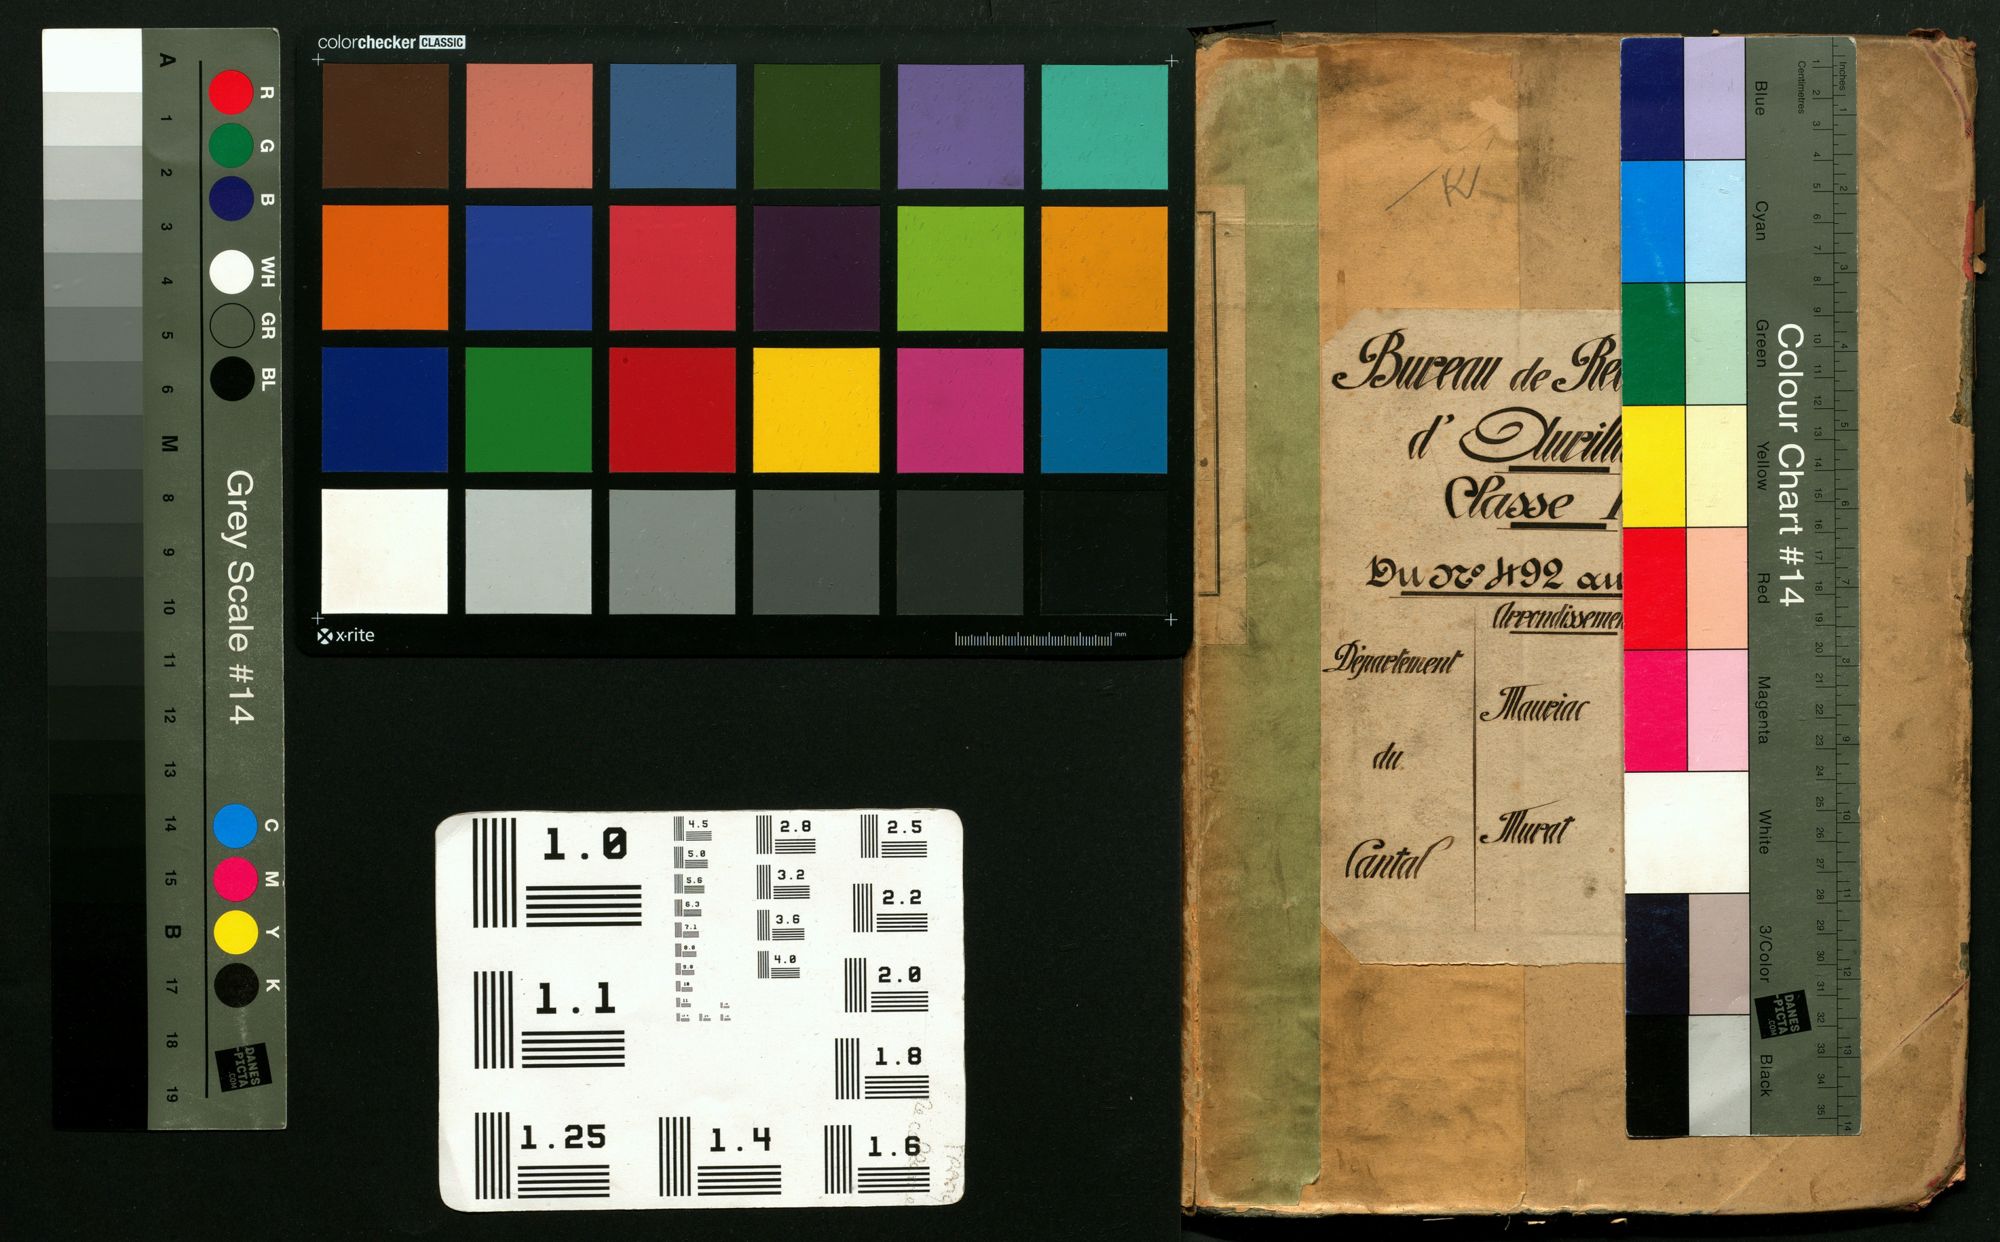 colorchecker CLASSIC
x·rite
mm
A
1
2
3
4
5
6
M
8
9
10
11
12
13
14
15
B
17
18
19
R
G
B
WH
GR
BL
Grey Scale #14
C
M
Y
K
DANES
-PICTA
.COM
1.0
1.1
1.25
1.4
1.6
1.8
2.0
2.2
2.5
2.8
3.2
3.6
4.0
4.5
5.0
5.6
6.3
7.1
8.0
9.0
10
11
Bureau de
d' Aurill
Classe
Du No 492 au
Arrondissemen
Département
du
Cantal
Mauriac
Murat
Colour Chart #14
Blue
Cyan
Green
Yellow
Red
Magenta
White
3/Color
Black
Inches
1
2
3
4
5
6
7
8
9
10
11
12
13
14
Centimetres
1
2
3
4
5
6
7
8
9
10
11
12
13
14
15
16
17
18
19
20
21
22
23
24
25
26
27
28
29
30
31
32
33
34
35
DANES
-PICTA
.COM